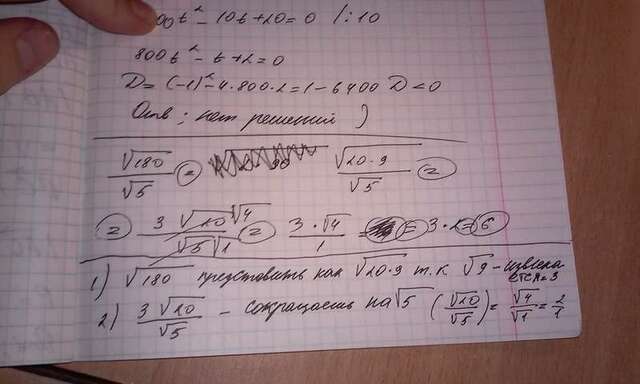 00t² - 10t + 20 = 0 /: 10
800t² - t + 2 = 0
D = (-1)² - 4·800·2 = 1 - 6400 D < 0
Отв: нет решений )
√180 / √5 = √(20·9) / √5 =
= 3 √20 √4 / √5 √1 = 3·√4 / 1 = 3·2 = 6
1) √180 представить как √(20·9) т.к √9 - извлекается = 3
2) 3√20 / √5 - сокращаешь на √5 (√20 / √5) = √4 / √1 = 2 / 1